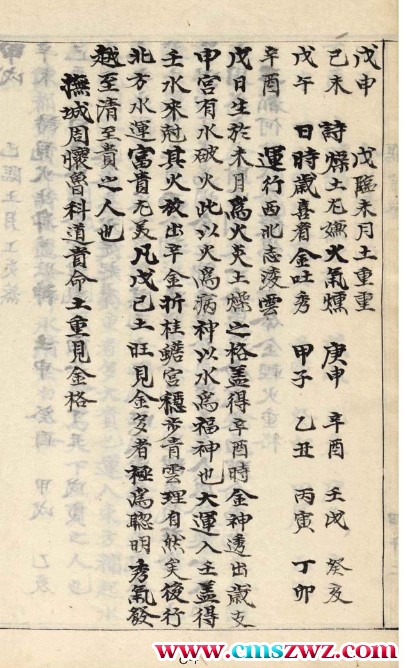 戊申 戊臨未月土重重
己未 詩 燥土尤嫌火氣燻 庚申 辛酉 壬戌 癸亥
戊午 日時歲喜看金旺秀 甲子 乙丑 丙寅 丁卯
辛酉 運行西北志凌雲
戊日生於未月爲火炎土燥之格蓋得辛酉時金神透出歲支
甲宮有水破火此以火爲病神以水爲福神也大運入壬蓋得
壬水來尅其火放出辛金折桂蟾宮穩步青雲理有然矣後行
北方水運富貴尤美凡戊己土旺見金多者極爲聰明秀氣發
越至清至貴之人也
撫城周懷魯科道貴命土重見金格
www.cmszwz.com